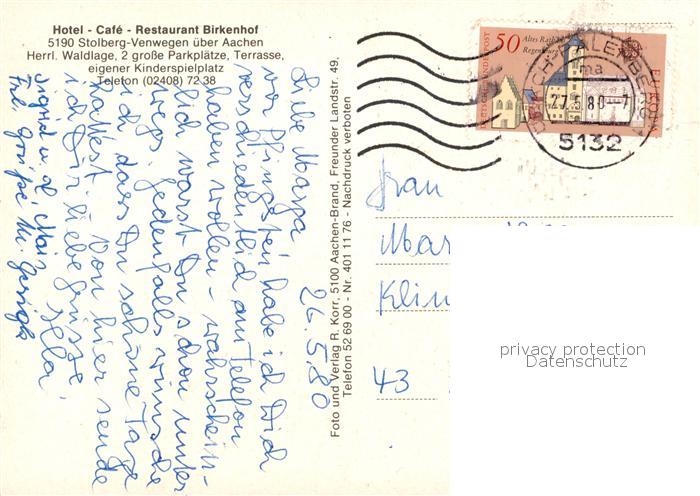 Hotel - Café - Restaurant Birkenhof
5190 Stolberg-Venwegen über Aachen
Herrl. Waldlage, 2 große Parkplätze, Terrasse,
eigener Kinderspielplatz
Telefon (02408) 72 38
26.5.80
Liebe Marga
vor Pfingsten habe ich Dich
verschiedentlich am Telefon
haben wollen - wahrschein-
lich warst Du schon unter-
wegs. Jedenfalls wünsche
ich dass Du schöne Tage
hattest. Von hier sende
ich Dir liebe Grüsse
Sigrid u.
Foto und Verlag R. Korr, 5100 Aachen-Brand, Freunder Landstr. 49,
Telefon 52 69 00 - Nr. 401 11 76 - Nachdruck verboten
50
Altes Rathaus
Regensburg
DEUTSCHE BUNDESPOST
EUROPA
27.5.80-
5132
Frau
Mar
Klin
43
privacy protection
Datenschutz